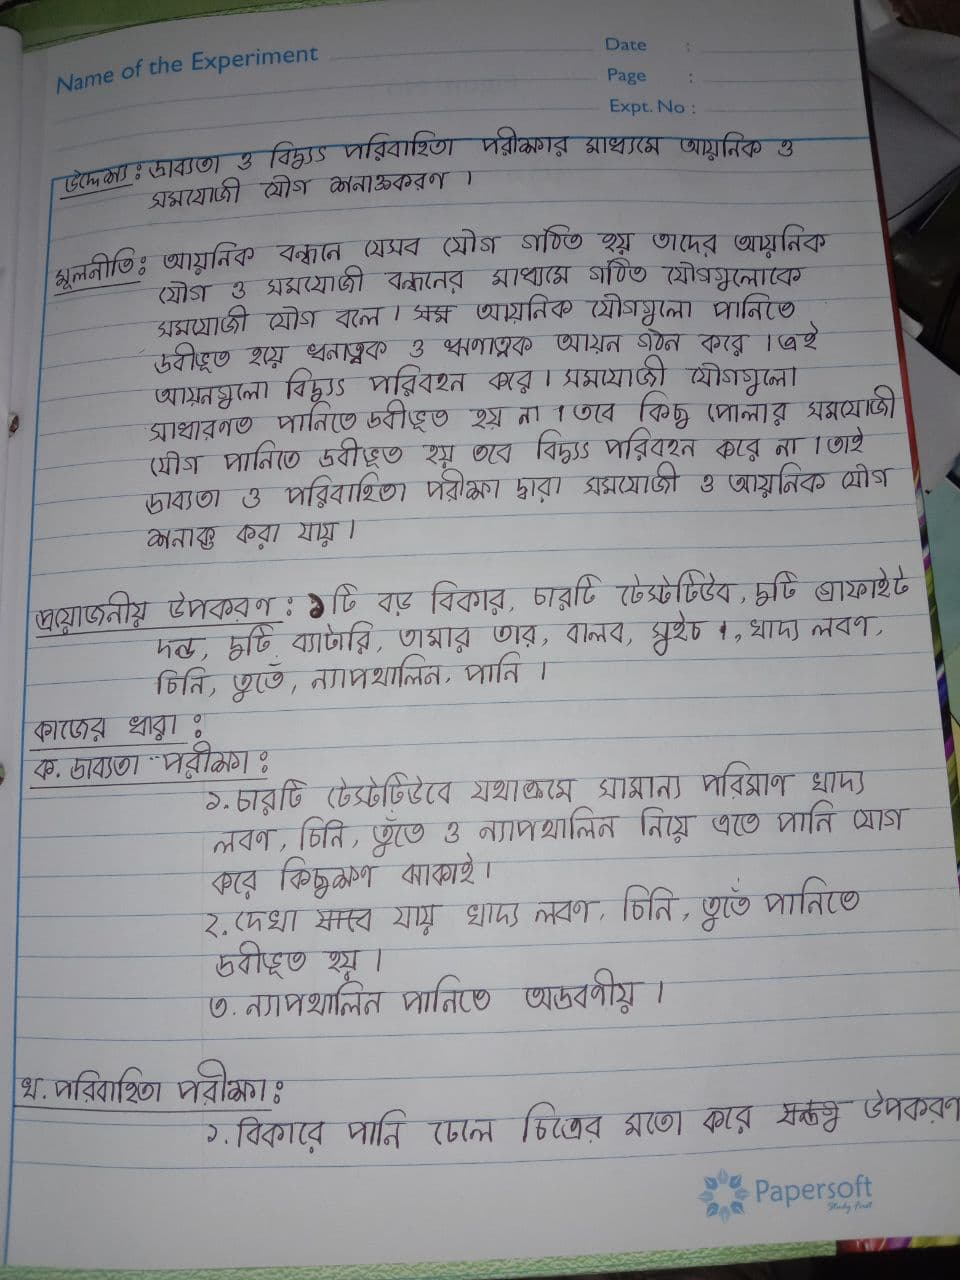 Name of the Experiment
Date :
Page :
Expt. No :
উদ্দেশ্য : দ্রাব্যতা ও বিদ্যুৎ পরিবাহিতা পরীক্ষার মাধ্যমে আয়নিক ও
সমযোজী যৌগ শনাক্তকরণ ।
মূলনীতি : আয়নিক বন্ধনে যেসব যৌগ গঠিত হয় তাদের আয়নিক
যৌগ ও সমযোজী বন্ধনের মাধ্যমে গঠিত যৌগগুলোকে
সমযোজী যৌগ বলে । আয়নিক যৌগগুলো পানিতে
দ্রবীভূত হয়ে ধনাত্বক ও ঋণাত্বক আয়ন গঠন করে । এই
আয়নগুলো বিদ্যুৎ পরিবহন করে । সমযোজী যৌগগুলো
সাধারণত পানিতে দ্রবীভূত হয় না । তবে কিছু পোলার সমযোজী
যৌগ পানিতে দ্রবীভূত হয় তবে বিদ্যুৎ পরিবহন করে না । তাই
দ্রাব্যতা ও পরিবাহিতা পরীক্ষা দ্বারা সমযোজী ও আয়নিক যৌগ
শনাক্ত করা যায় ।
প্রয়োজনীয় উপকরণ : ১টি বড় বিকার, চারটি টেস্টটিউব, দুটি গ্রাফাইট
দন্ড, দুটি ব্যাটারি, তামার তার, বালব, সুইচ , খাদ্য লবণ,
চিনি, তুতেঁ, ন্যাপথালিন, পানি ।
কাজের ধারা :
ক. দ্রাব্যতা পরীক্ষা :
১. চারটি টেস্টটিউবে যথাক্রমে সামান্য পরিমাণ খাদ্য
লবণ, চিনি, তুঁতে ও ন্যাপথালিন নিয়ে এতে পানি যোগ
করে কিছুক্ষণ ঝাকাই ।
২. দেখা যায় খাদ্য লবণ, চিনি, তুতেঁ পানিতে
দ্রবীভূত হয় ।
৩. ন্যাপথালিন পানিতে অদ্রবণীয় ।
খ. পরিবাহিতা পরীক্ষা :
১. বিকারে পানি ঢেলে চিত্রের মতো করে উপকরণ
Papersoft
Study First